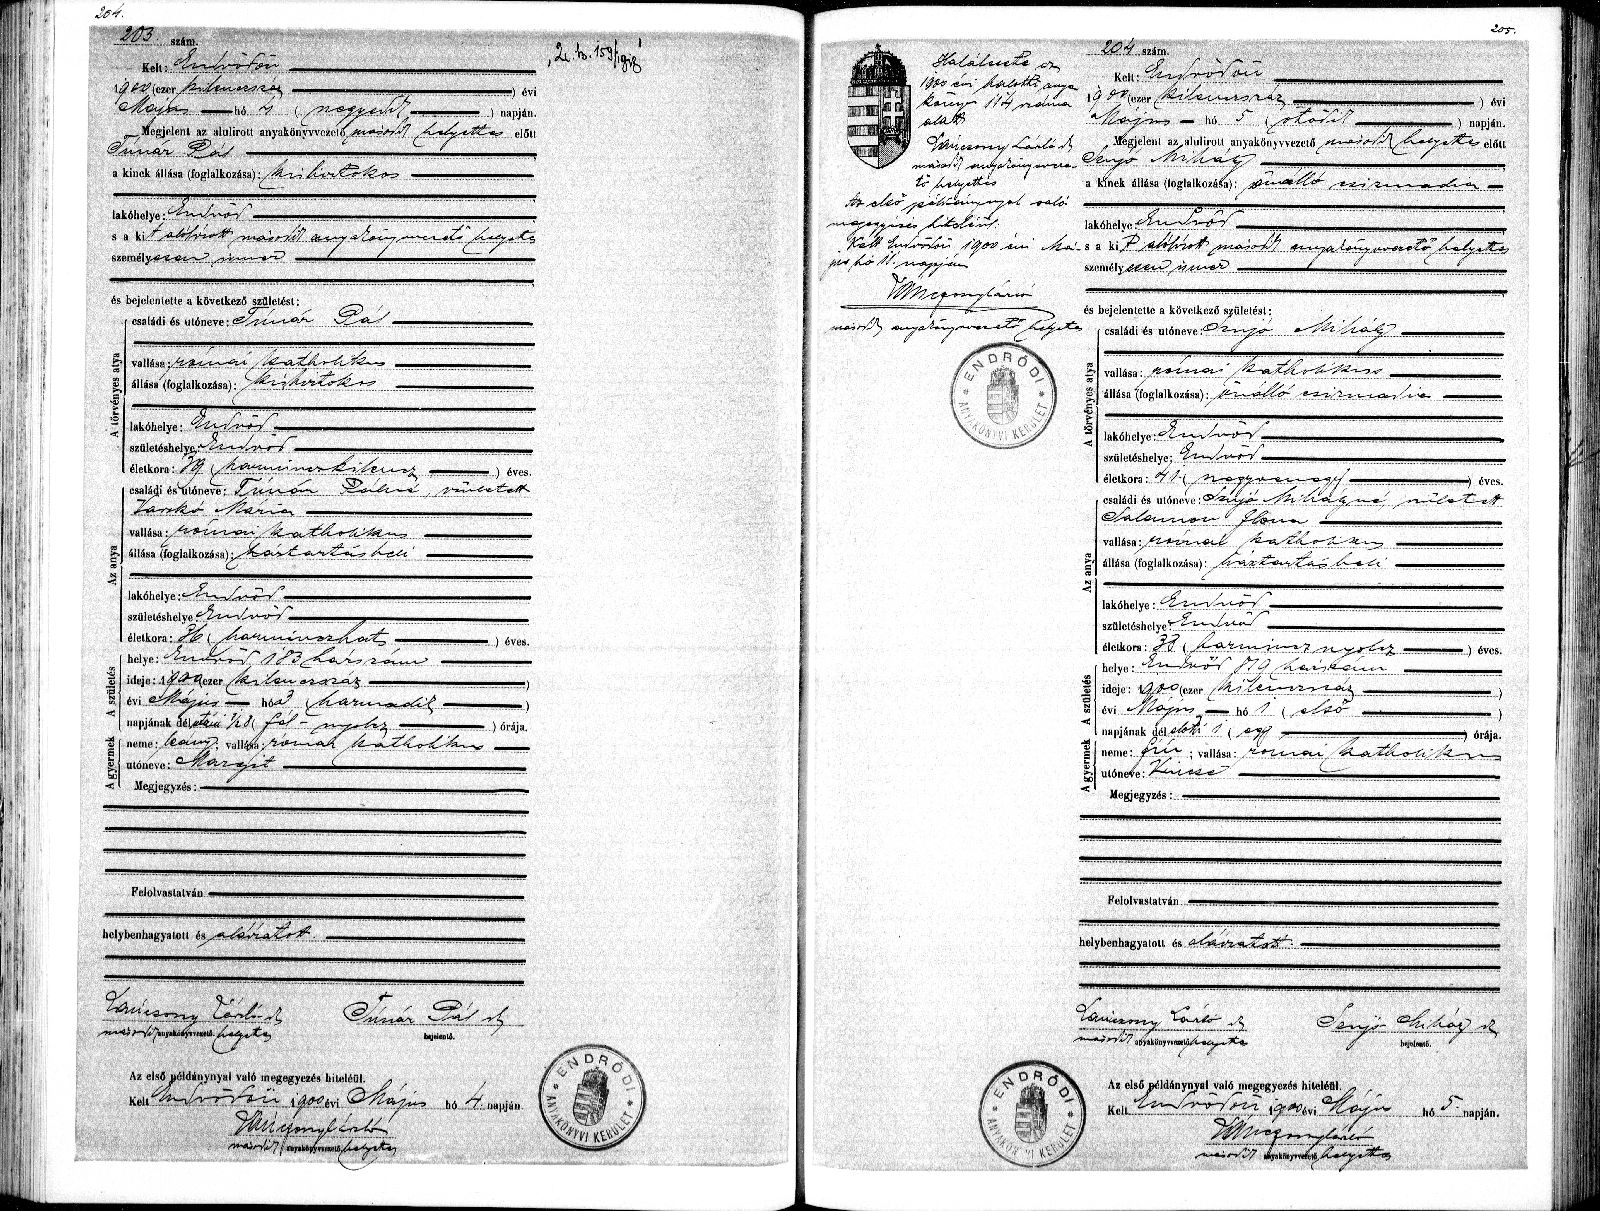 204.
203 szám.
Kelt: Endrődön
1900 (ezer kilencszáz) évi
Május hó 4 (negyedik) napján.
Megjelent az alulirott anyakönyvvezető második helyettes előtt
Tímár Pál
a kinek állása (foglalkozása): kisbirtokos
lakóhelye: Endrőd
s a kit alólirott második anyakönyvvezető helyettes
személyesen ismer
és bejelentette a következő születést:
A törvényes atya
családi és utóneve: Tímár Pál
vallása: római katholikus
állása (foglalkozása): kisbirtokos
lakóhelye: Endrőd
születéshelye: Endrőd
életkora: 39 (harminczkilencz) éves.
Az anya
családi és utóneve: Tímár Pálné, született
Varkó Mária
vallása: római katholikus
állása (foglalkozása): háztartásbeli
lakóhelye: Endrőd
születéshelye: Endrőd
életkora: 36 (harminczhat) éves.
A születés
helye: Endrőd 183 házszám
ideje: 1900 (ezer kilenczszáz)
évi Május hó 3 (harmadik)
napjának délelőtti 1/2 8 (fél-nyolcz) órája.
A gyermek
neme: leány; vallása: római katholikus
utóneve: Margit
Megjegyzés:
Felolvastatván
helybenhagyatott és aláiratott.
Laurcsony László sk
második anyakönyvvezető helyettes
Tímár Pál sk
bejelentő.
Az első példánynyal való megegyezés hiteléül.
Kelt Endrődön 1900 évi Május hó 4 napján.
második anyakönyvvezető helyettes
ENDRŐDI
ANYAKÖNYVI KERÜLET
205.
Halálesete az
1900 évi halotti anya
könyv 114 száma
alatt
László sk
második anyakönyvveze
tő helyettes
Az első példánynyal való
megegyezés hiteléül.
Kelt Endrődön 1900 évi Má-
jus hó 11. napján
második anyakönyvvezető helyettes
ENDRŐDI
ANYAKÖNYVI KERÜLET
204 szám.
Kelt: Endrődön
1900 (ezer kilenczszáz) évi
Május hó 5 (ötödik) napján.
Megjelent az alulirott anyakönyvvezető második helyettes előtt
Szujó Mihály
a kinek állása (foglalkozása): önálló csizmadia
lakóhelye: Endrőd
s a kit alólirott második anyakönyvvezető helyettes
személyesen ismer
és bejelentette a következő születést:
A törvényes atya
családi és utóneve: Szujó Mihály
vallása: római katholikus
állása (foglalkozása): önálló csizmadia
lakóhelye: Endrőd
születéshelye: Endrőd
életkora: 41 (negyvenegy) éves.
Az anya
családi és utóneve: Szujó Mihályné, született
Salamon Ilona
vallása: római katholikus
állása (foglalkozása): háztartásbeli
lakóhelye: Endrőd
születéshelye: Endrőd
életkora: 38 (harmincz nyolcz) éves.
A születés
helye: Endrőd 819 házszám
ideje: 1900 (ezer kilenczszáz)
évi Május hó 1 (első)
napjának délelőtti 1 (egy) órája.
A gyermek
neme: fiú; vallása: római katholikus
utóneve: Vincze
Megjegyzés:
Felolvastatván
helybenhagyatott és aláiratott.
László sk
második anyakönyvvezető helyettes
Szujó Mihály sk
bejelentő.
Az első példánynyal való megegyezés hiteléül.
Kelt Endrődön 1900 évi Május hó 5 napján.
második anyakönyvvezető helyettes
ENDRŐDI
ANYAKÖNYVI KERÜLET